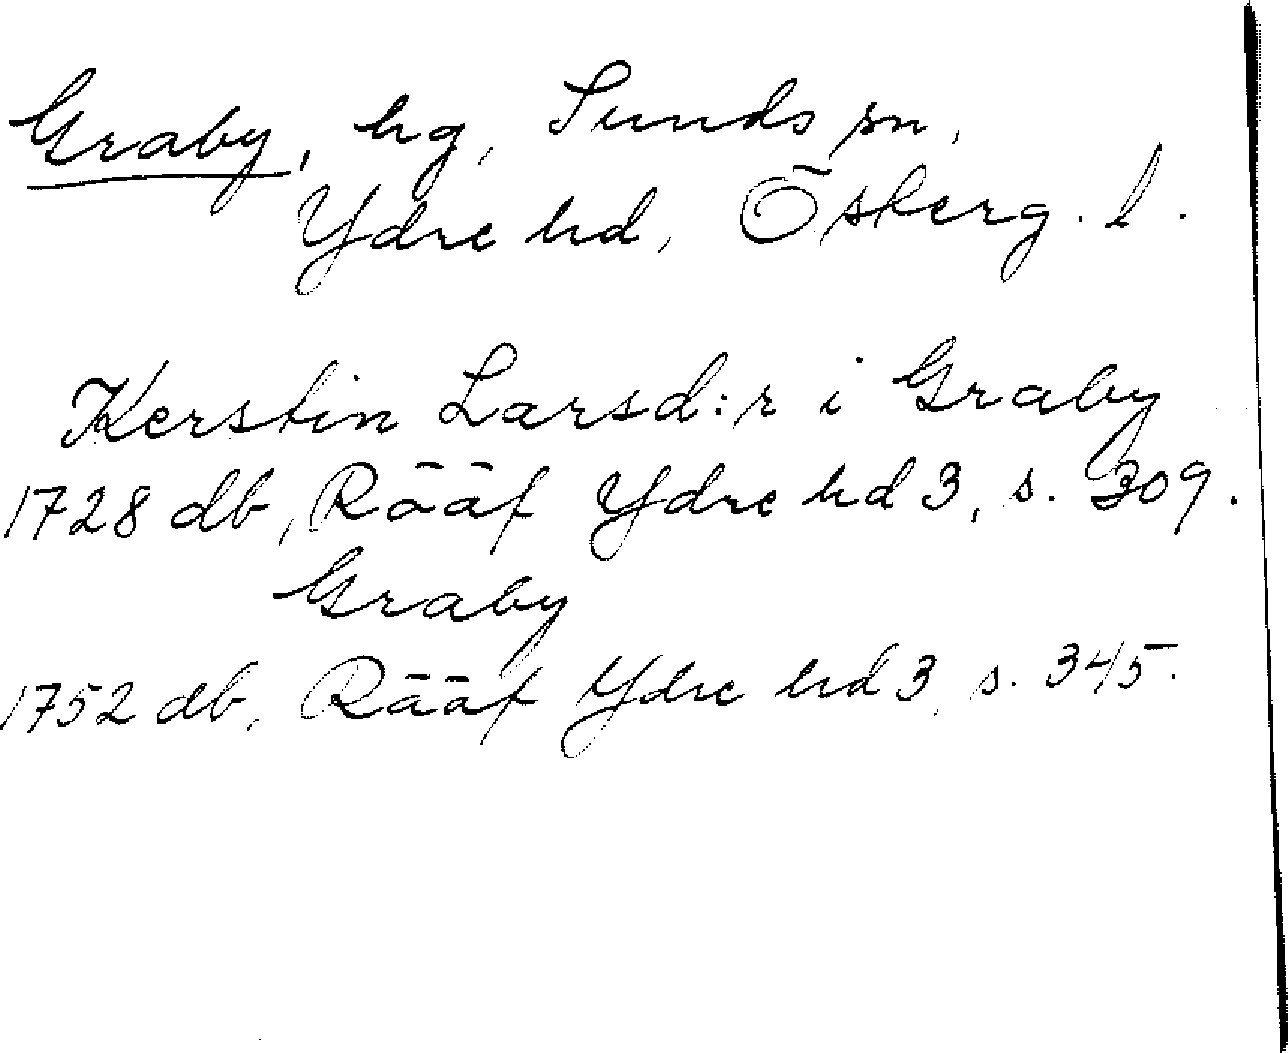 Graby, hg, Sunds sn,
Ydre hd, Österg. l.
Kerstin Larsd:r i Graby
1728 db, Rääf Ydre hd 3, s. 309.
Graby
1752 db, Rääf Ydre hd 3, s. 345.